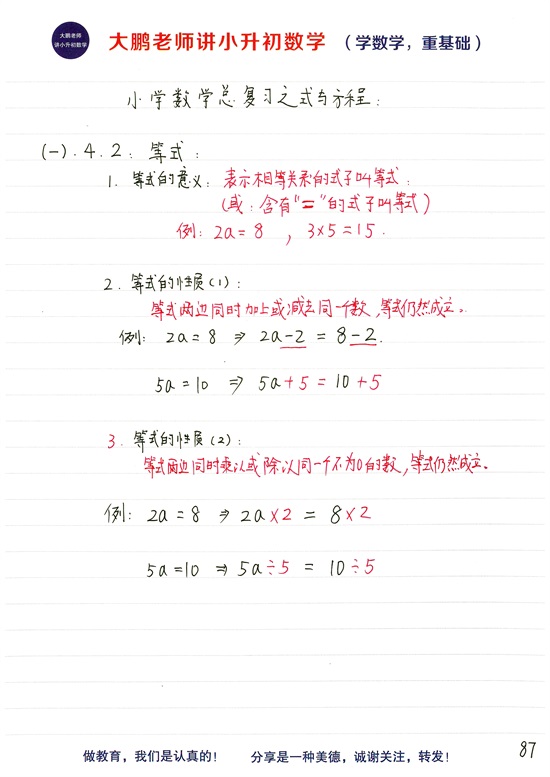 大鹏老师
讲小升初数学
大鹏老师讲小升初数学 （学数学，重基础）
小学数学总复习之式与方程：
(一).4.2：等式：
1. 等式的意义：表示相等关系的式子叫等式：
(或：含有“=”的式子叫等式)
例：2a=8 ，3×5=15.
2. 等式的性质(1)：
等式两边同时加上或减去同一个数，等式仍然成立。
例：2a=8 ⇒ 2a-2=8-2.
5a=10 ⇒ 5a+5=10+5
3. 等式的性质(2)：
等式两边同时乘以或除以同一个不为0的数，等式仍然成立。
例：2a=8 ⇒ 2a×2=8×2
5a=10 ⇒ 5a÷5=10÷5
87
做教育，我们是认真的！ 分享是一种美德，诚谢关注，转发！